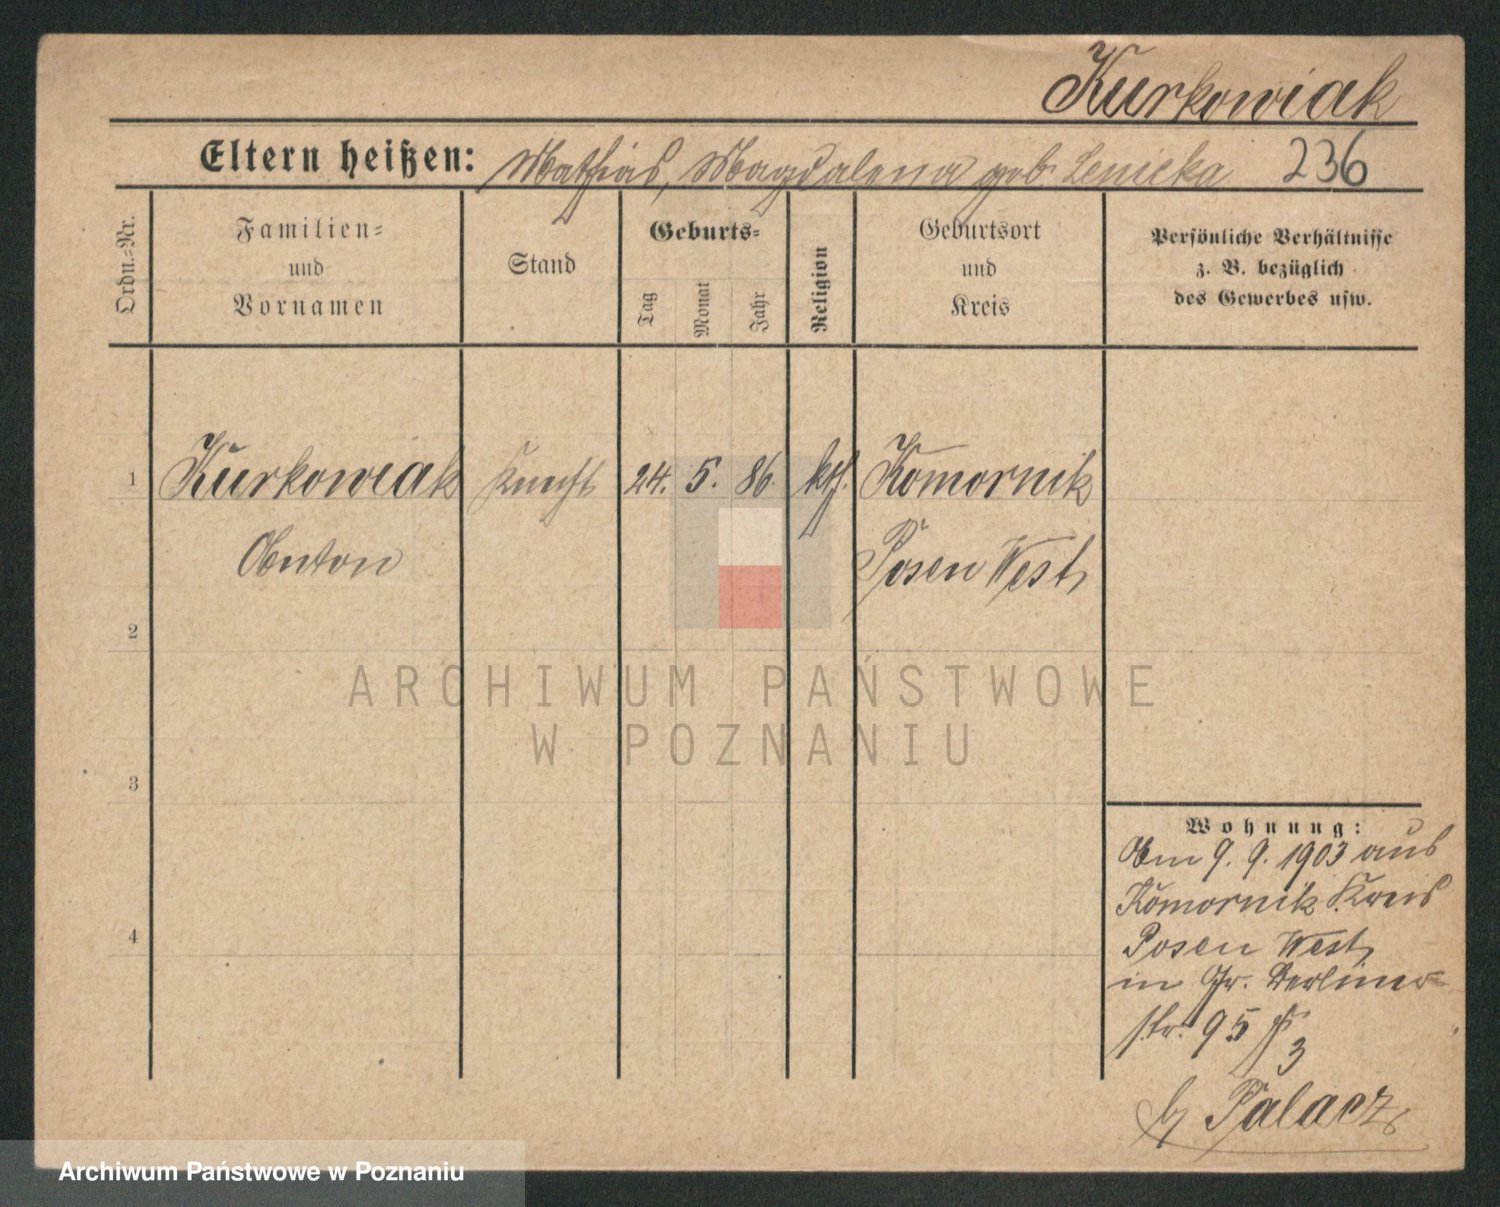 Kurkowiak
Eltern heißen: Mathias, Magdalena geb. Lenicka 236
Ordn.-Nr.
Familien-
und
Vornamen
Stand
Geburts-
Tag
Monat
Jahr
Religion
Geburtsort
und
Kreis
Persönliche Verhältnisse
z. B. bezüglich
des Gewerbes usw.
1 Kurkowiak Knecht 24. 5. 86. kth. Komornik
Anton Posen West
2
ARCHIWUM PAŃSTWOWE
W POZNANIU
3
Wohnung:
Am 9. 9. 1903 aus
Komornik Kreis
Posen West
4
in Gr. Berliner-
str. 95
3
b/ Palacz
Archiwum Państwowe w Poznaniu